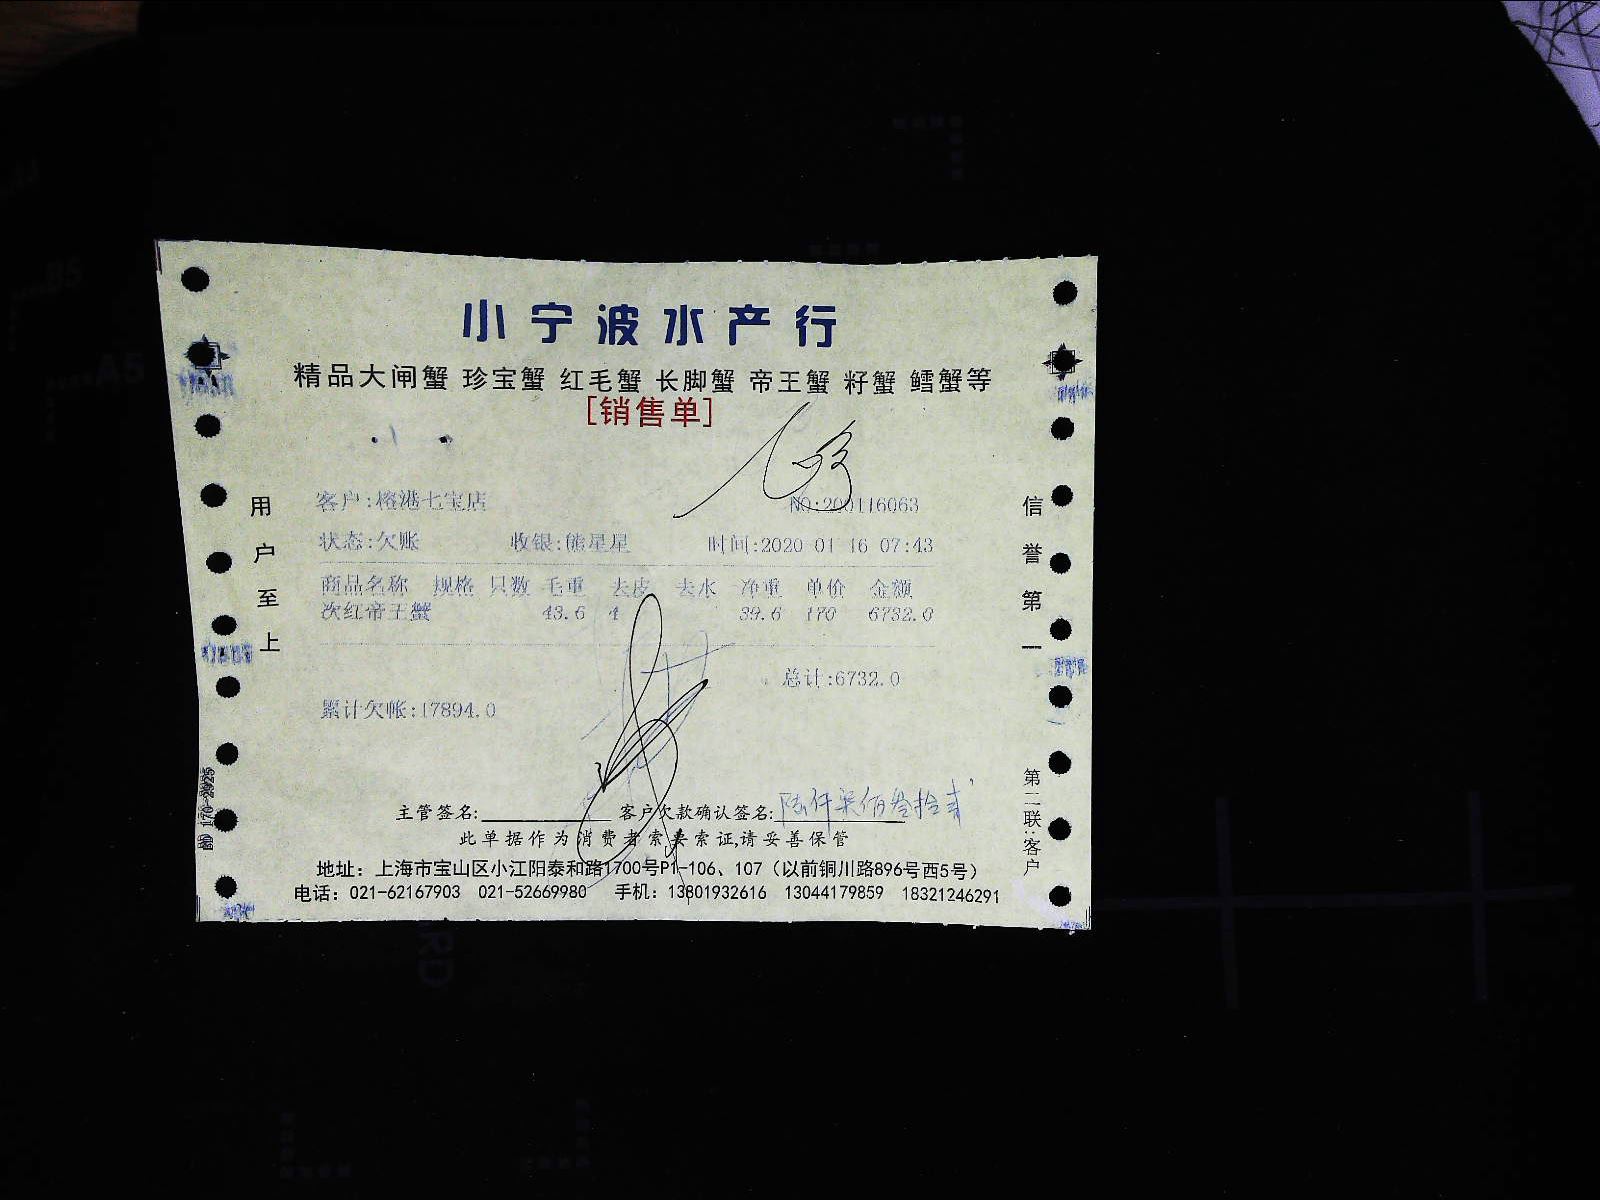 小宁波水产行
精品大闸蟹 珍宝蟹 红毛蟹 长脚蟹 帝王蟹 籽蟹 鳕蟹等
[销售单]
客户:榕港七宝店 NO:200116063
状态:欠账 收银:熊星星 时间:2020 01 16 07:43
商品名称 规格 只数 毛重 去皮 去水 净重 单价 金额
次红帝王蟹 43.6 4 39.6 170 6732.0
总计:6732.0
累计欠帐:17894.0
主管签名: 客户欠款确认签名:陆仟柒佰叁拾贰
此单据作为消费者索要索证,请妥善保管
地址：上海市宝山区小江阳泰和路1700号P1-106、107（以前铜川路896号西5号）
电话：021-62167903 021-52669980 手机：13801932616 13044179859 18321246291
用户至上
信誉第一
第二联:客户